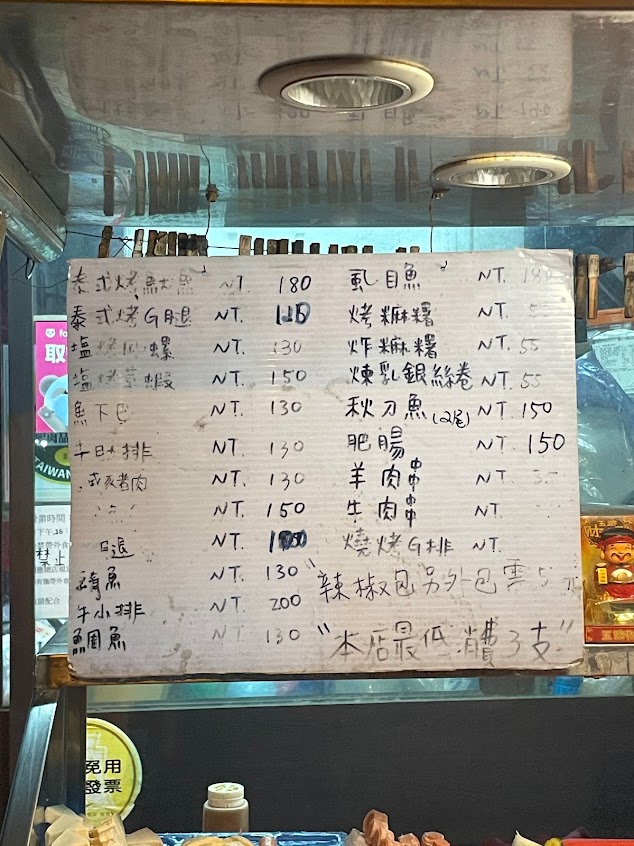 泰式烤魷魚 NT. 180
泰式烤G腿 NT.
塩烤風螺 NT. 130
塩烤草蝦 NT. 150
魚下巴 NT. 130
牛 排 NT. 130
式豬肉 NT. 130
NT. 150
腿 NT.
魚 NT. 130
牛小排 NT. 200
鯛魚 NT. 130
虱目魚 NT. 180
烤麻糬 NT. 55
炸麻糬 NT. 55
煉乳銀絲卷 NT. 55
秋刀魚(2尾) NT. 150
肥腸 NT. 150
羊肉串 NT. 35
牛肉串 NT.
燒烤G排 NT.
"辣椒包另外包需5元
"本店最低消費3支"
取
TAIWAN
營業時間
禁止
免用
發票